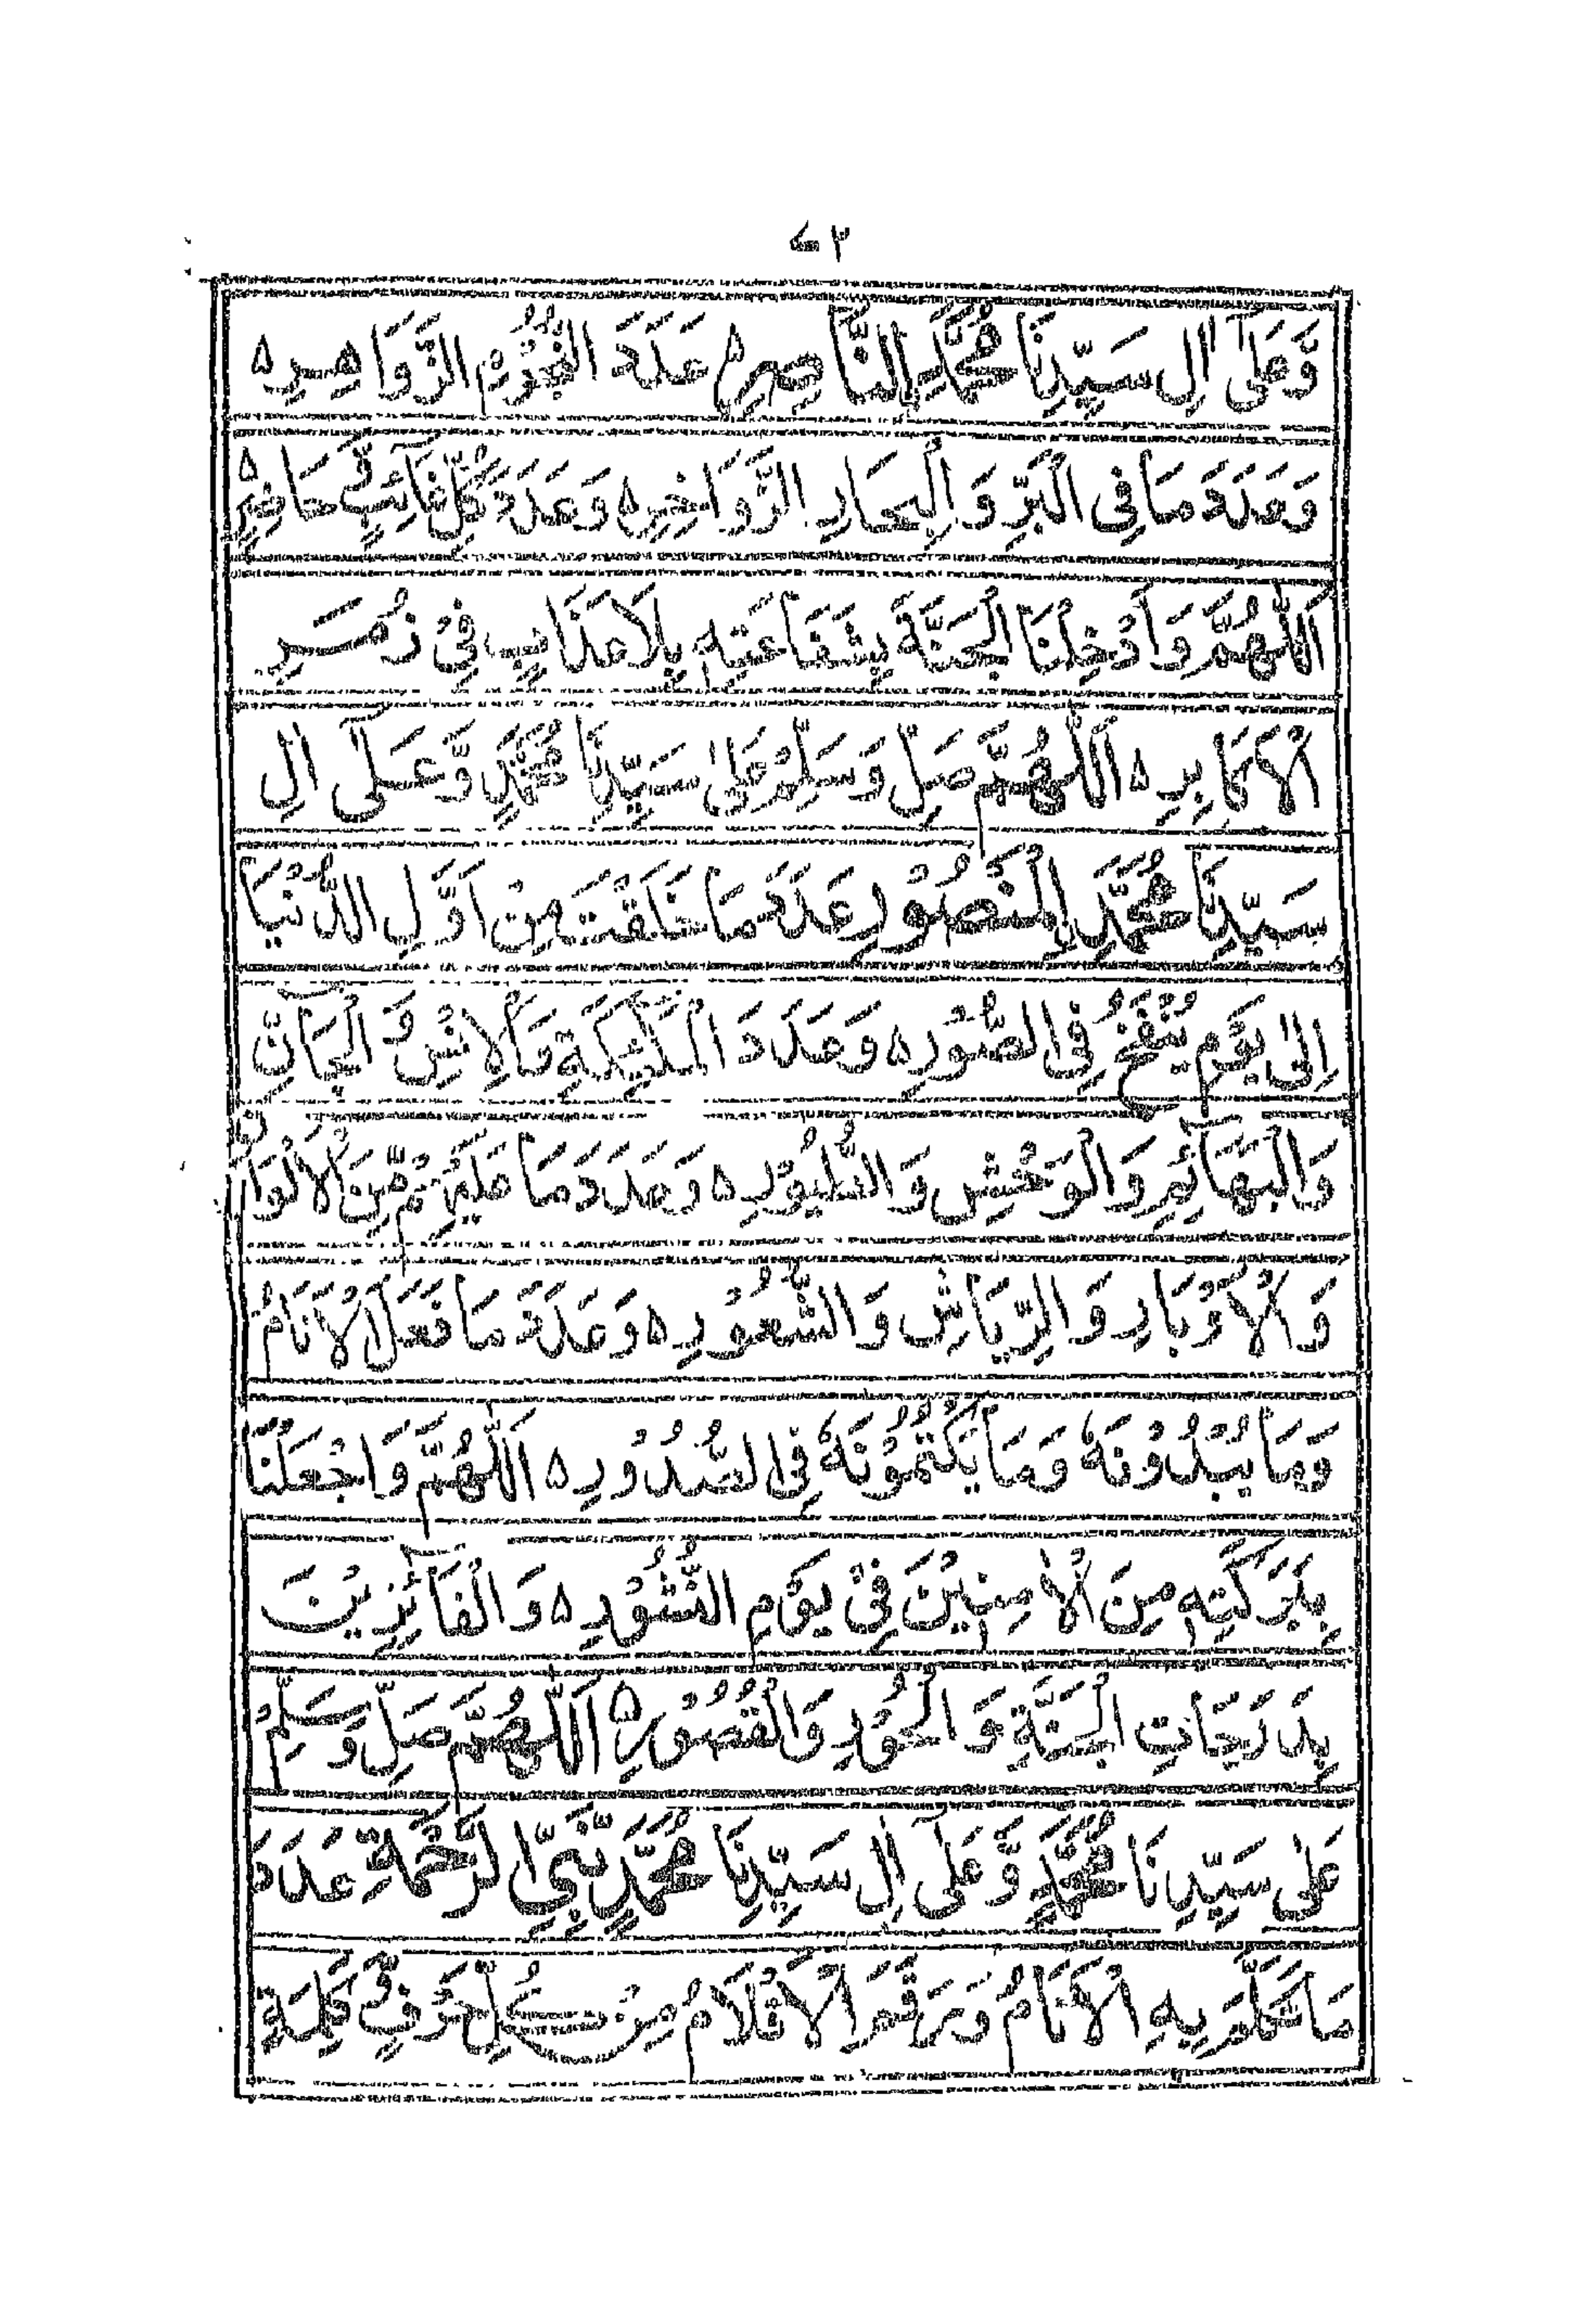 ۷۳
وَّعَلٰى اٰلِ سَيِّدِنَا مُحَمَّدِ اِلنَّاصِرِه عَدَدَ النُّجُوْمِ الزَّوَاهِرِه
وَعَدَدَ مَا فِى الْبَرِّ وَالْبِحَارِ الزَّوَاخِرِه وَعَدَدَ كُلِّ غَائِبٍ حَاضِرٍه
اَللّٰهُمَّ وَاَدْخِلْنَا الْجَنَّةَ بِشَفَاعَتِهٖ بِلَا عَذَابٍ فِىْ زُمَرِ
الْاَكَابِرِه اَللّٰهُمَّ صَلِّ وَسَلِّمْ عَلٰى سَيِّدِنَا مُحَمَّدٍ وَّعَلٰٓى اٰلِ
سَيِّدِنَا مُحَمَّدِ اِلْمَنْصُوْرِ عَدَدَ مَا خَلَقْتَ مِنْ اَوَّلِ الدُّنْيَا
اِلٰى يَوْمِ يُنْفَخُ فِى الصُّوْرِه وَعَدَدَ الْمَلٰٓئِكَةِ وَالْاِنْسِ وَالْجَآنِّ
وَالْبَهَآئِمِ وَالْوَحْشِ وَالطُّيُوْرِه وَعَدَدَ مَا عَلَيْهِمْ مِّنَ الْاَلْوَانِ
وَالْاَوْبَارِ وَالرِّيَاشِ وَالشُّعُوْرِه وَعَدَدَ مَا فَعَلَ الْاَنَامُ
وَمَا يُبْدُوْنَهٗ وَمَا يَكْتُمُوْنَهٗ فِى الصُّدُوْرِه اَللّٰهُمَّ وَاجْعَلْنَا
بِبَرَكَتِهٖ مِنَ الْاٰمِنِيْنَ فِىْ يَوْمِ النُّشُوْرِه وَالْفَآئِزِيْنَ
بِدَرَجَاتِ الْجَنَّةِ وَالْحُوْرِ وَالْقُصُوْرِه اَللّٰهُمَّ صَلِّ وَسَلِّمْ
عَلٰى سَيِّدِنَا مُحَمَّدٍ وَّعَلٰٓى اٰلِ سَيِّدِنَا مُحَمَّدٍ نَّبِىِّ الرَّحْمَةِ عَدَدَ
مَا تَكَلَّمَ بِهِ الْاَنَامُ وَتَرْقَمُ الْاَقْلَامُ مِنْ كُلِّ حَرْفٍ كَلِمَةٍ